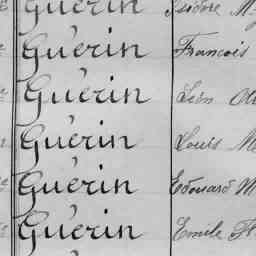 Guérin Isidore M
Guérin François
Guérin Léon
Guérin Louis M
Guérin Edouard M
Guérin Emile